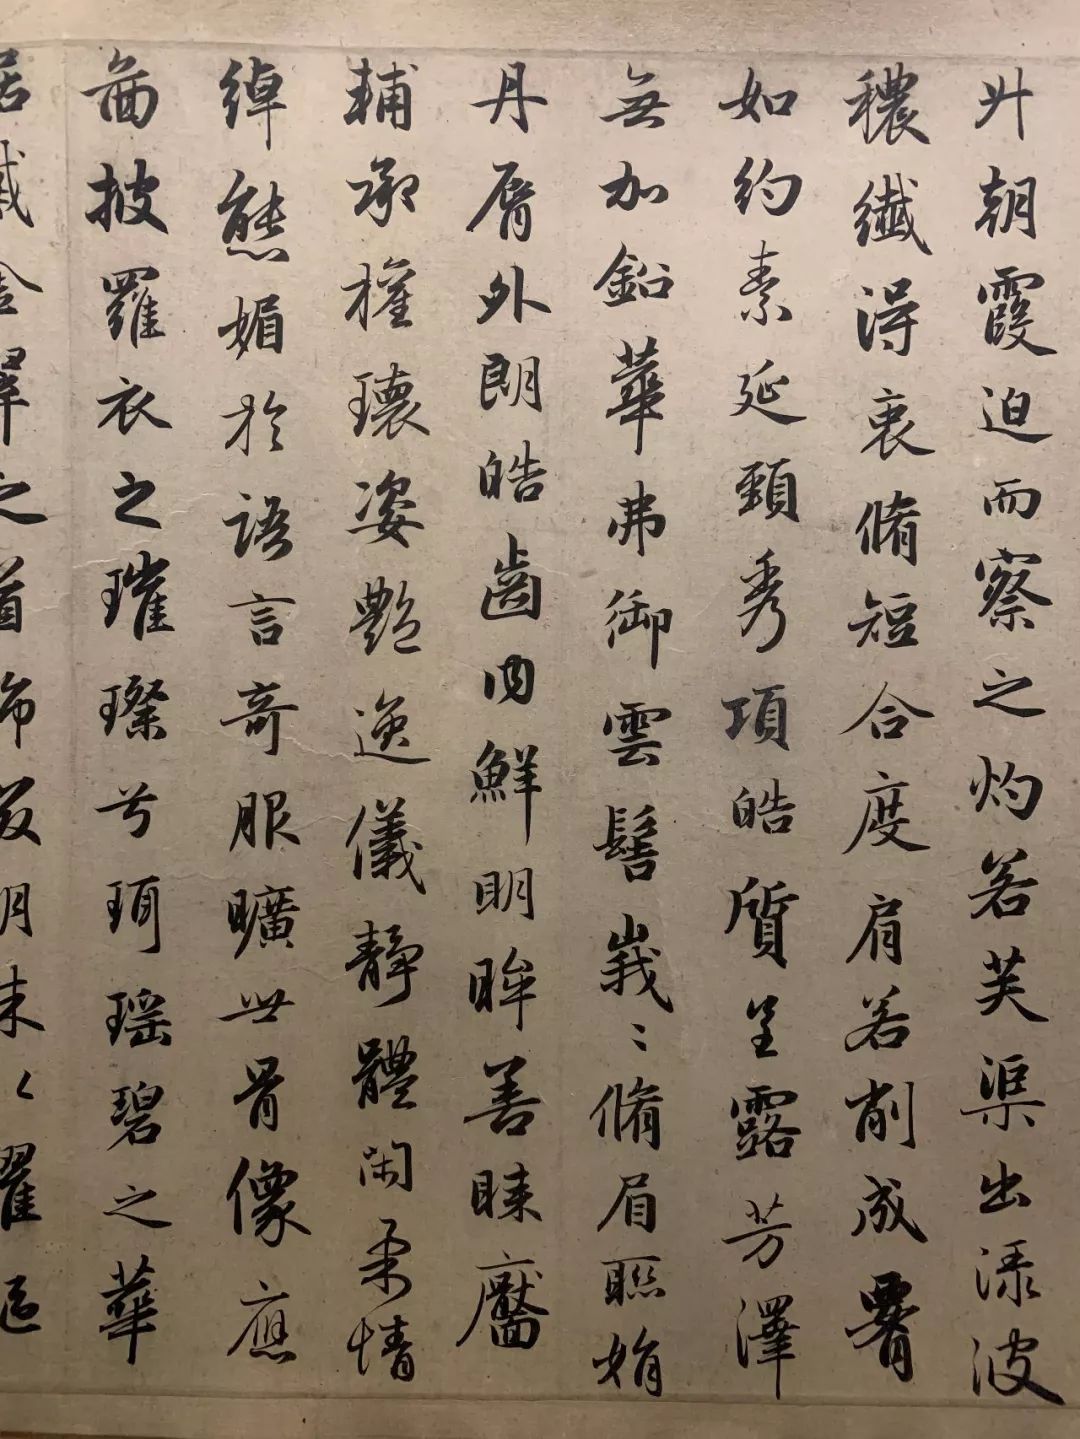 升朝霞迫而察之灼若芙渠出渌波
穠纎得衷脩短合度肩若削成署
如約素延頸秀項皓質呈露芳澤
無加鈆華弗御雲髻峩〻脩眉聮娟
丹脣外朗皓齒内鮮明眸善睞靨
輔承權瓌姿艶逸儀静體閑柔情
綽態媚於語言奇服曠世骨像應
啚披羅衣之璀璨兮珥瑶碧之華
翠之首飾綴明珠以耀